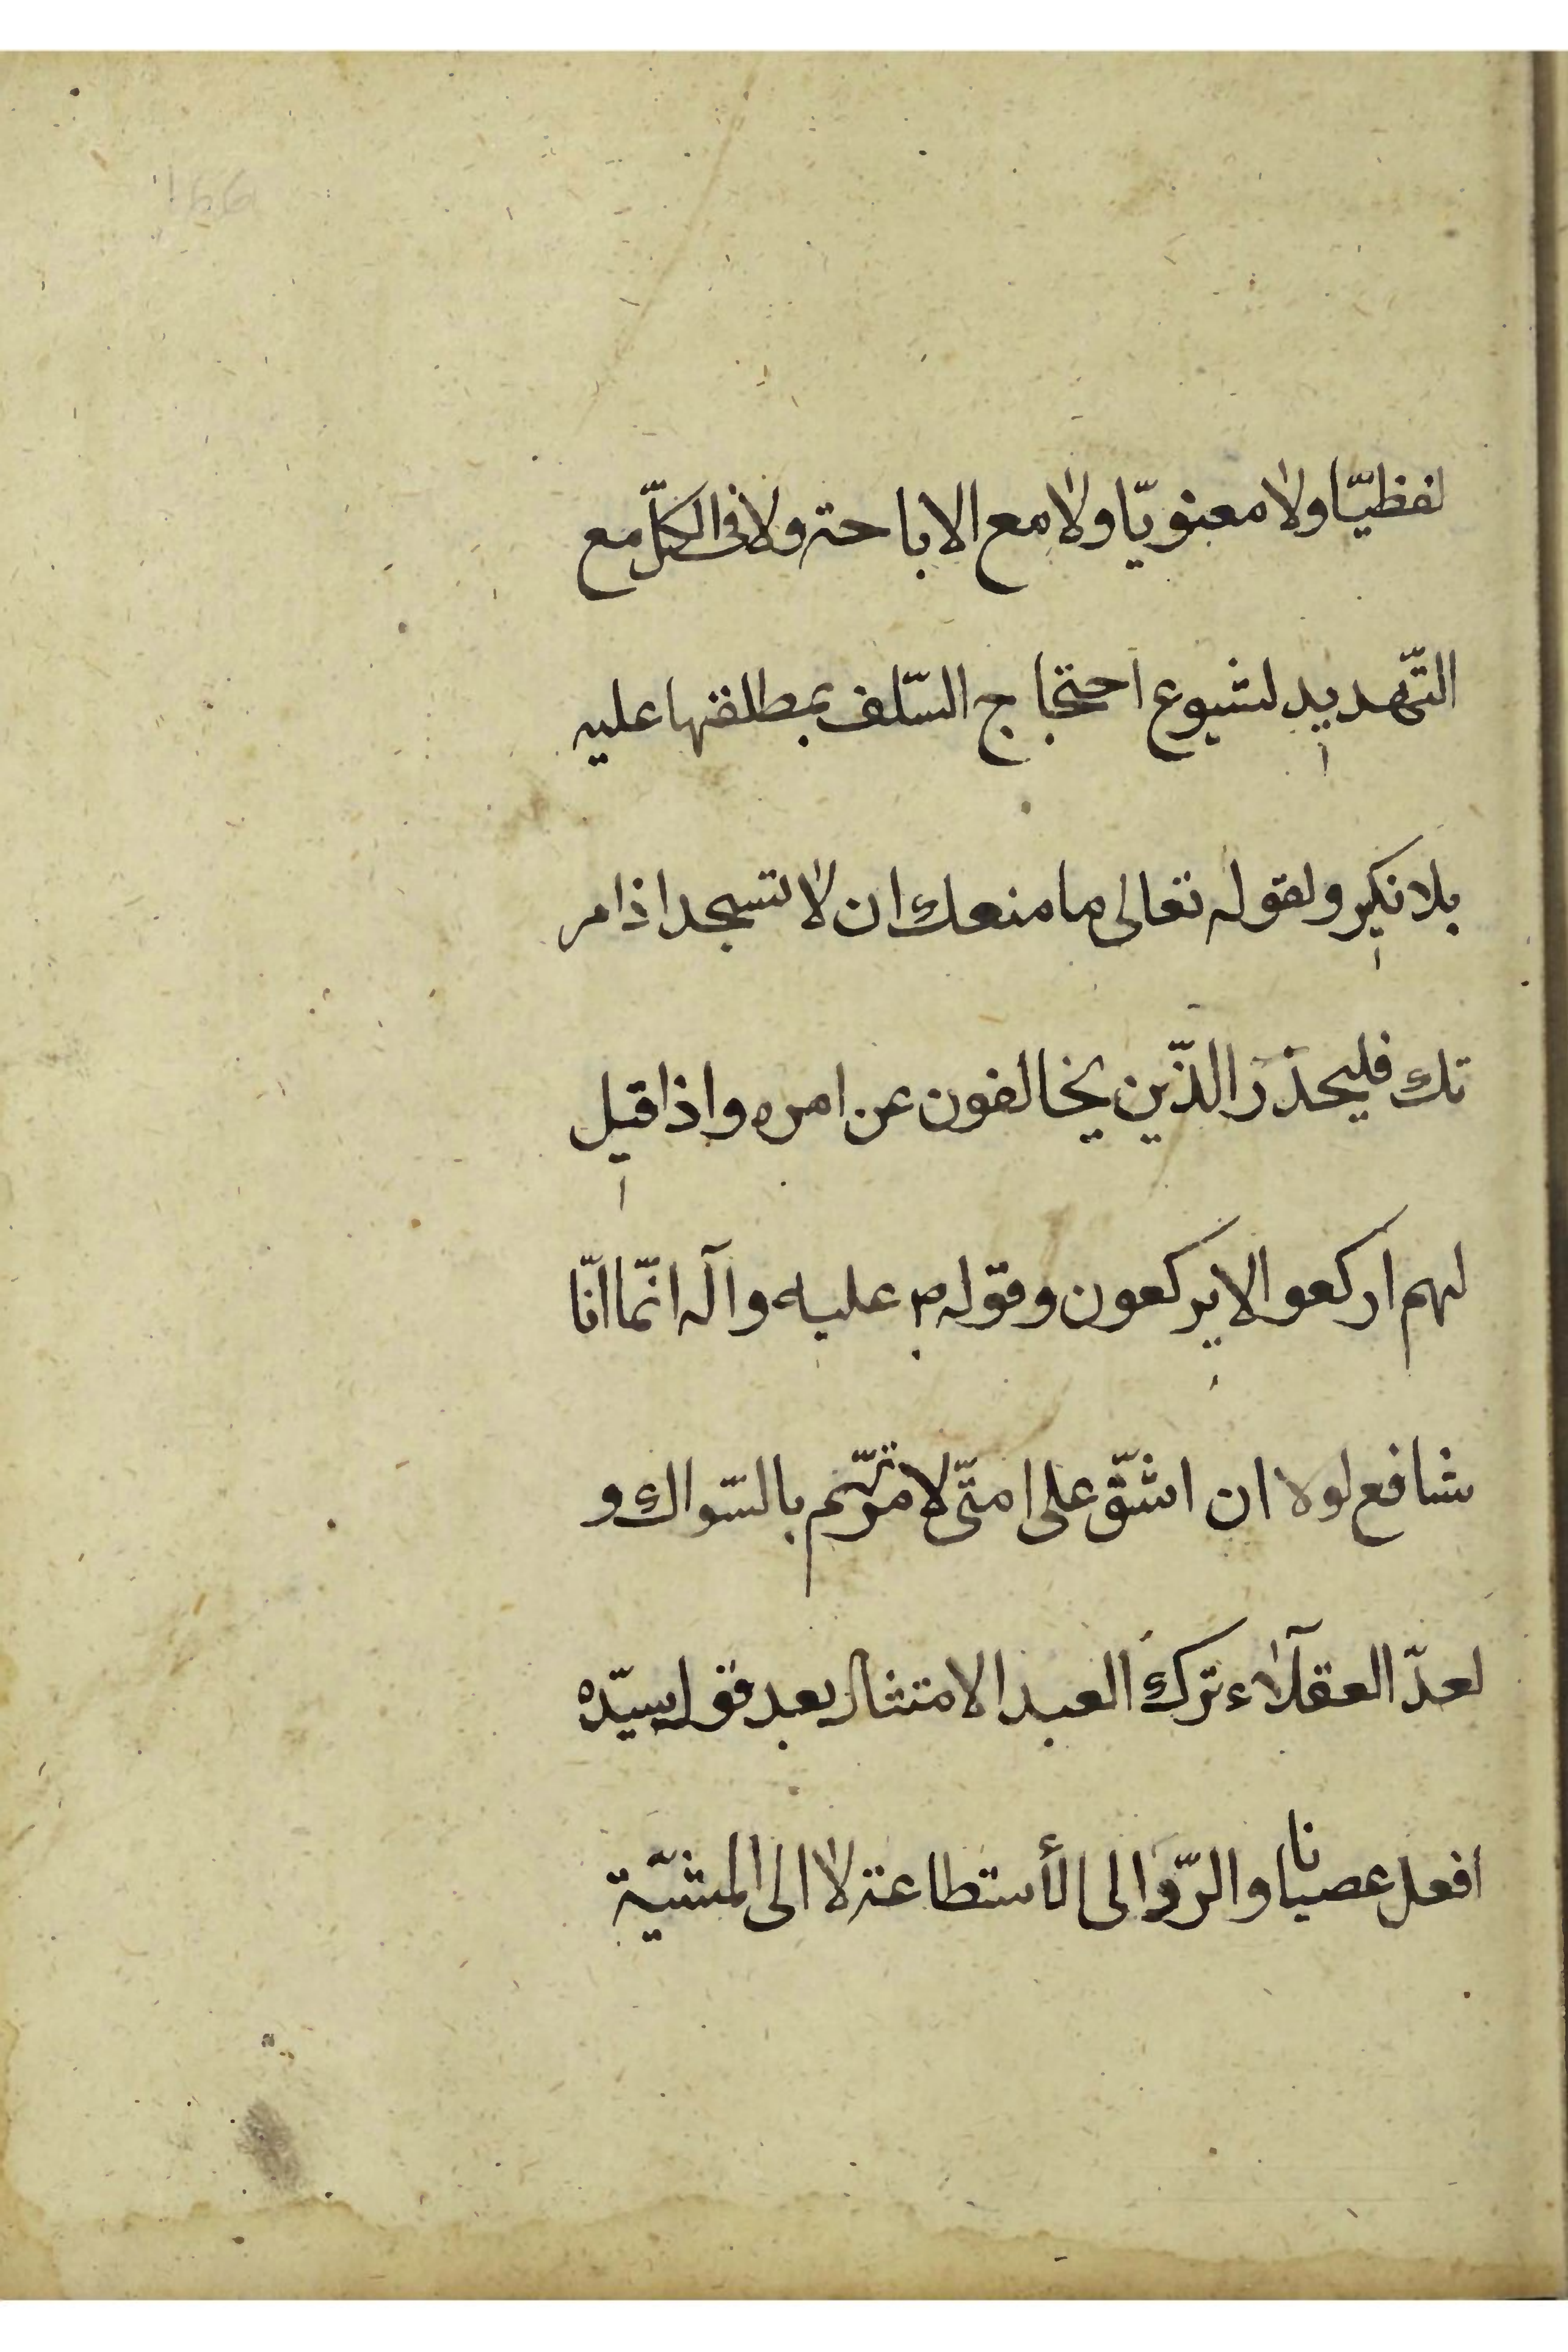 لفظيّا ولا معنويّا ولا مع الاباحة ولا فى الكلّ مع
التّهديد لشيوع احتجاج السّلف بمطلقها عليه
بلا نكير ولقوله تعالى ما منعك ان لا تسجد اذ امر
تك فليحذر الذّين يخالفون عن امره واذا قيل
لهم اركعوا لا يركعون وقوله ص عليه وآله انّما انّا
شافع لولا ان اشقّ على امتّى لامرتّهم بالسّواك و
لعدّ العقلآء ترك العبد الامتثال بعد قول سيّده
افعل عصيانا والرّد الى الأستطاعة لا الى المشيّة